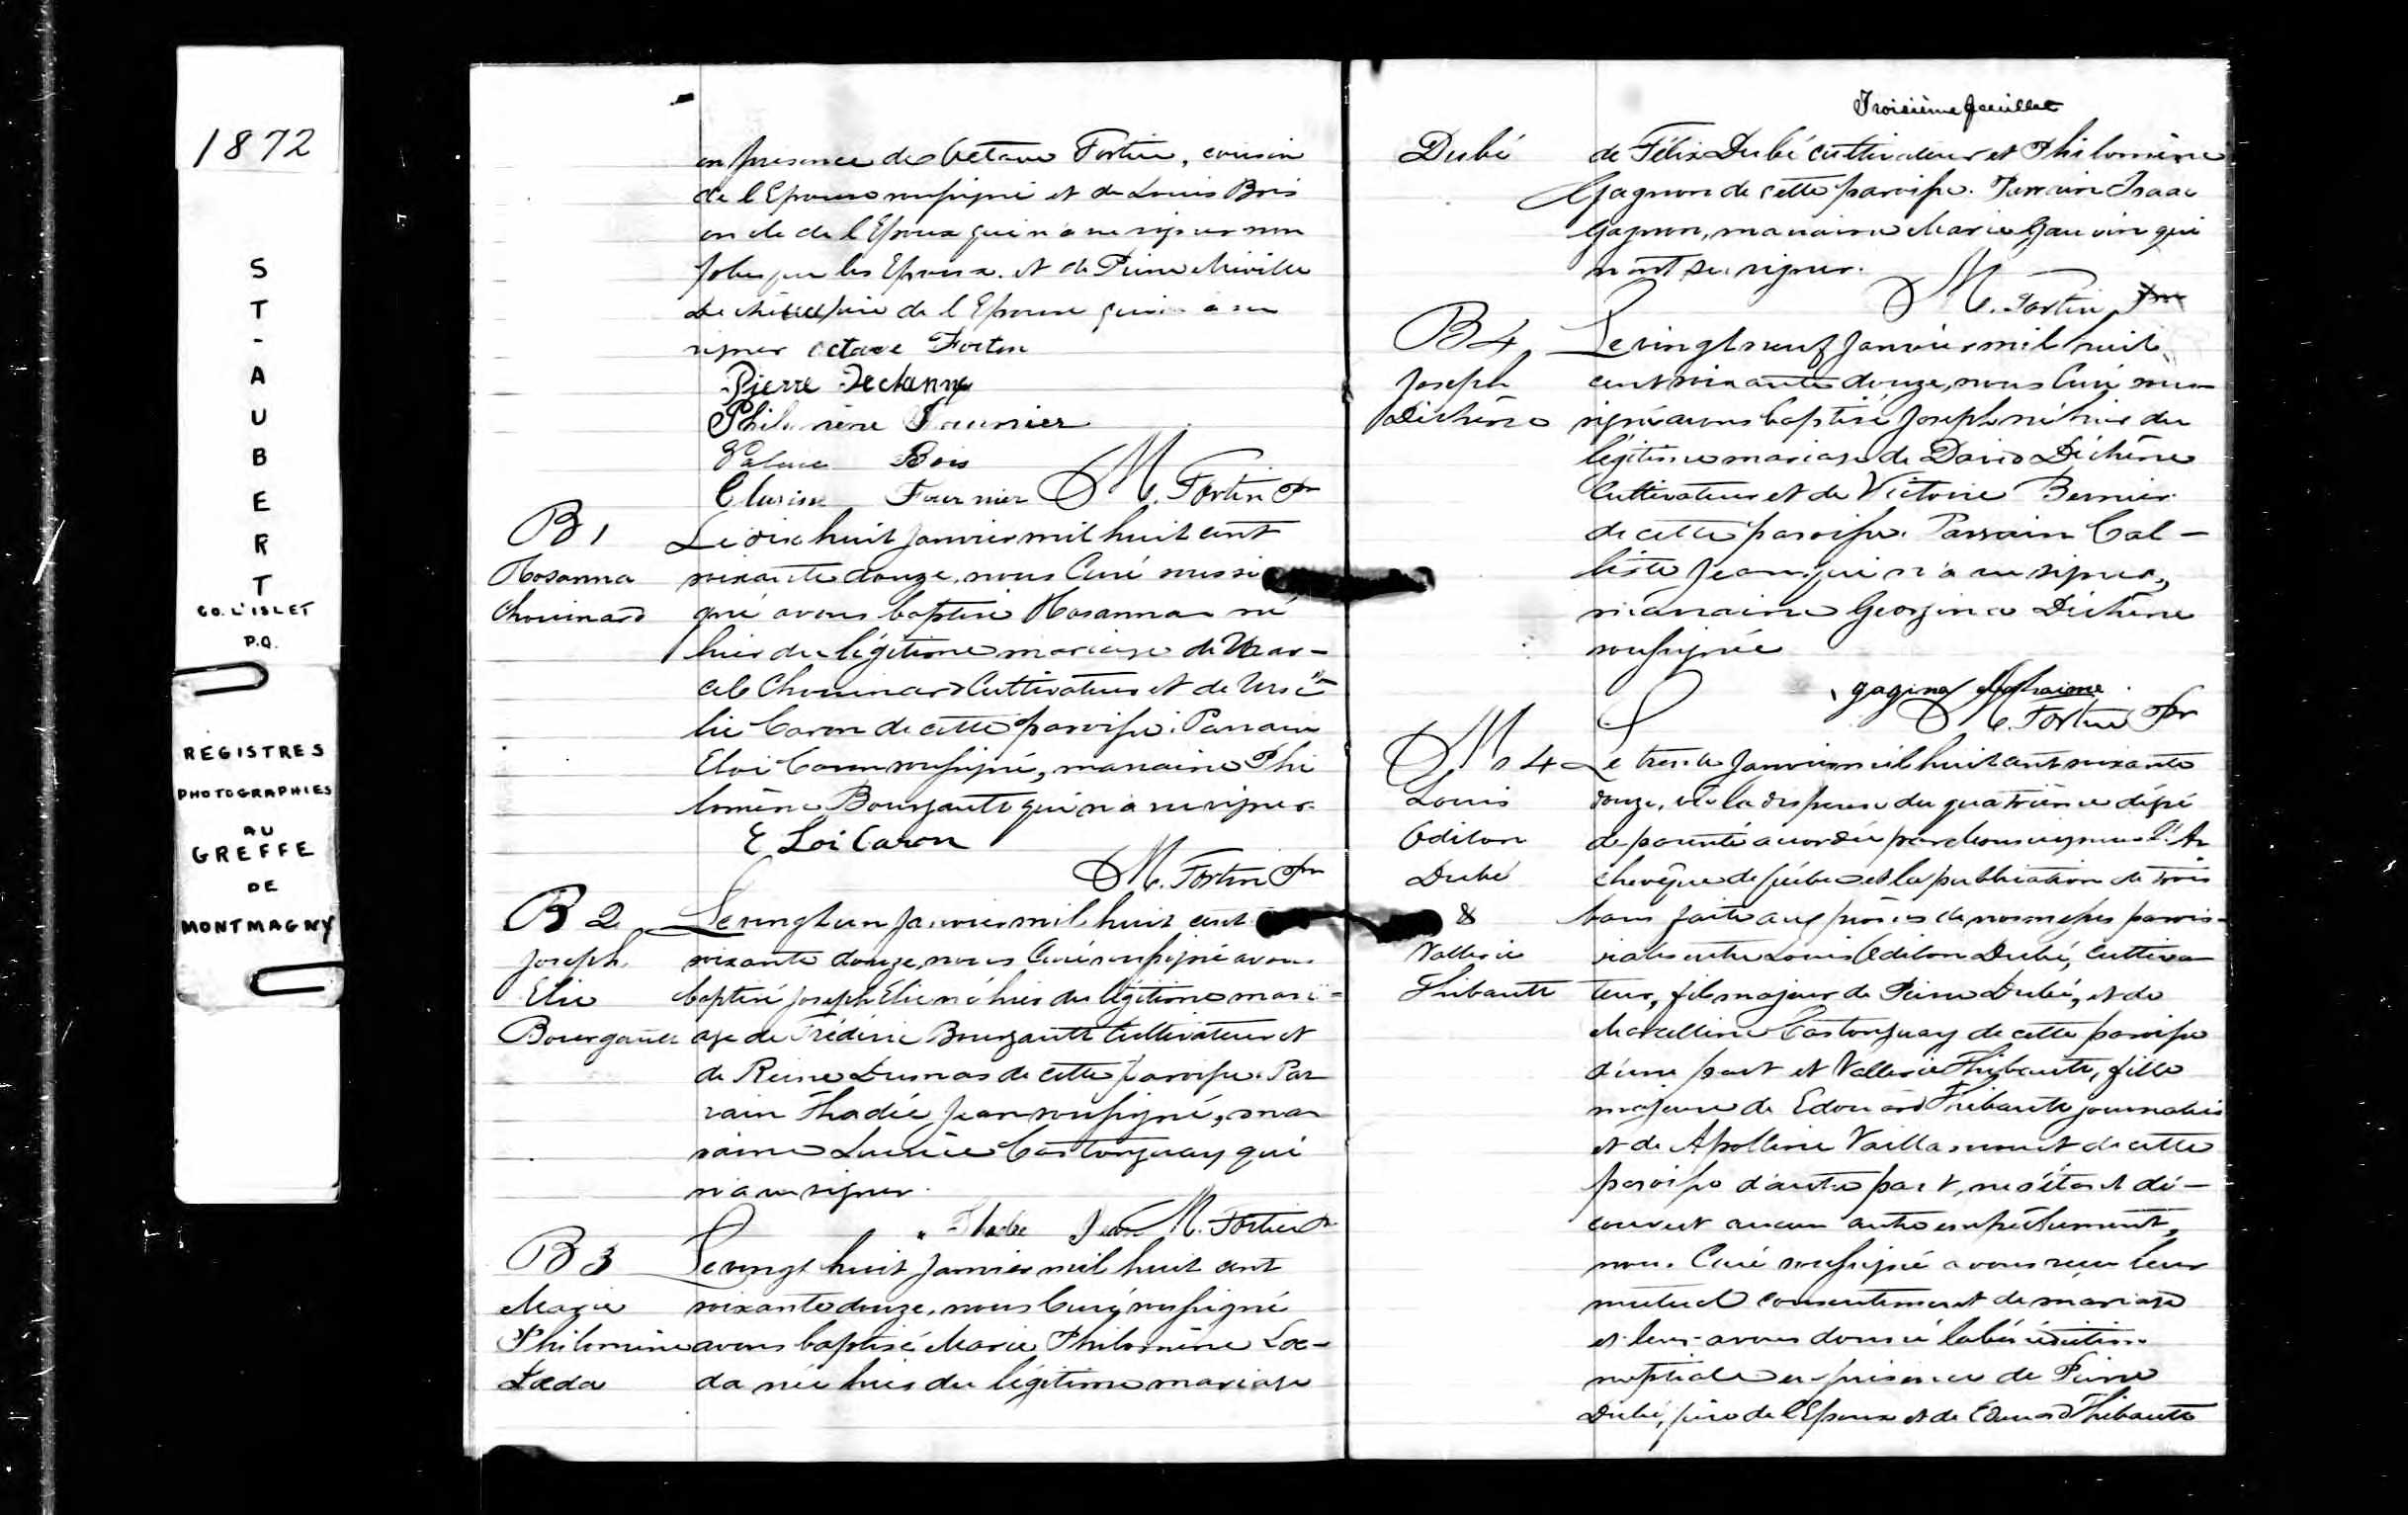 1872
S
T
-
A
U
B
E
R
T
CO. L'ISLET
P.Q.
REGISTRES
PHOTOGRAPHIES
AU
GREFFE
DE
MONTMAGNY
en presence de Octave Fortin, cousin
de l'Epouse soussigné et de Louis Bois
oncle de l'Epoux qui n'a su signer non
plus que les Epoux. et de Pierre Miville
père de l'Epouse qui n'a su
signer Octave Fortin
Pierre
Philomène Fournier
Bois
Clarisse Fournier M. Fortin Ptre
B 1
Hosanna
Chouinard
Le dix huit Janvier mil huit cent
soixante douze, nous Curé soussi
gné avons baptisé Hosanna né
hier du légitime mariage de Mar-
cel Chouinard Cultivateur et de Ursé
lie Caron de cette paroisse. Parrain
Eloi Caron soussigné, marraine Phi
lomène Bourgault qui n'a su signer.
E Loi Caron
M. Fortin Ptre
B 2
Joseph
Elie
Bourgault
Le vingt un Janvier mil huit cent
soixante douze, nous Curé soussigné avons
baptisé Joseph Elie né hier du légitime mari-
age de Frédéric Bourgault Cultivateur et
de Reine Dumas de cette paroisse. Par
rain Thadée Jean soussigné, mar
raine Luce Castonguay qui
n'a su signer.
Thadée Jean M. Fortin Ptre
B 3
Marie
Philomène
Læda
Le vingt huit Janvier mil huit cent
soixante douze, nous Curé soussigné
avons baptisé Marie Philomène Læ-
da née hier du légitime mariage
Troisième feuillet
Dubé
de Félix Dubé cultivateur et Philomène
Gagnon de cette paroisse. Parrain Isaac
Gagnon, marraine Marie Gauvin qui
n'ont su signer.
M. Fortin Ptre
B 4
Joseph
Dichène
Le vingt neuf Janvier mil huit
cent soixante douze, nous Curé sous
signé avons baptisé Joseph né hier du
légitime mariage de David Dichène
Cultivateur et de Victoire Bernier
de cette paroisse. Parrain Cal-
liste Jean qui n'a su signer,
marraine Georgina Dichène
soussignée
M. Fortin Ptre
M 4
Louis
Odilon
Dubé
&
Vallerie
Thibault
Le trente Janvier mil huit cent soixante
douze, vu la dispense du quatrième dégré
de parenté accordée par Monseigneur l'Ar
chevêque de Québec et la publication de trois
bans faite aux prônes de nos messes parois-
siales entre Louis Odilon Dubé, cultiva
teur, fils majeur de Pierre Dubé, et de
Marcelline Castonguay de cette paroisse
d'une part et Vallerie Thibault, fille
majeure de Edouard Thibault journalier
et de Apolline Vaillancourt de cette
paroisse d'autre part, ne s'étant dé-
couvert aucun autre empêchement,
nous Curé soussigné avons reçu leur
mutuel consentement de mariage
et leur avons donné la bénédiction
nuptiale en présence de Pierre
Dubé, père de l'Epoux et de Edouard Thibault